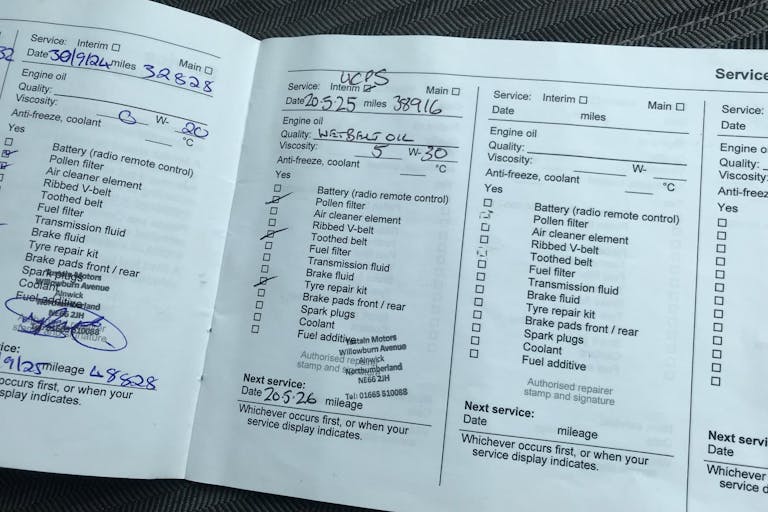 32
Service: Interim Main
Date 30/9/24 miles 32828
Engine oil
Quality:
Viscosity: 0 W- 20
Anti-freeze, coolant °C
Yes
Battery (radio remote control)
Pollen filter
Air cleaner element
Ribbed V-belt
Toothed belt
Fuel filter
Transmission fluid
Brake fluid
Tyre repair kit
Brake pads front / rear
Spark plugs
Coolant
Fuel additive
Willowburn Avenue
Alnwick
NE66 2JH
9/25 mileage 48828
occurs first, or when your
display indicates.
UCPS
Service: Interim Main
Date 20.5.25 miles 38916
Engine oil
Quality: WETBELT OIL
Viscosity: 5 W-30
Anti-freeze, coolant °C
Yes
Battery (radio remote control)
Pollen filter
Air cleaner element
Ribbed V-belt
Toothed belt
Fuel filter
Transmission fluid
Brake fluid
Tyre repair kit
Brake pads front / rear
Spark plugs
Coolant
Fuel additive
Authorised repairer
stamp and signature
Motors
Willowburn Avenue
Alnwick
Northumberland
NE66 2JH
Tel: 01665 510088
Next service:
Date 20.5.26 mileage
Whichever occurs first, or when your
service display indicates.
Service: Interim Main
Date miles
Engine oil
Quality:
Viscosity: W-
Anti-freeze, coolant °C
Yes
Battery (radio remote control)
Pollen filter
Air cleaner element
Ribbed V-belt
Toothed belt
Fuel filter
Transmission fluid
Brake fluid
Tyre repair kit
Brake pads front / rear
Spark plugs
Coolant
Fuel additive
Authorised repairer
stamp and signature
Next service:
Date mileage
Whichever occurs first, or when your
service display indicates.
Service
Service:
Date
Engine o
Quality:
Viscosity:
Anti-freez
Yes
Next servi
Date
Whichever
service d